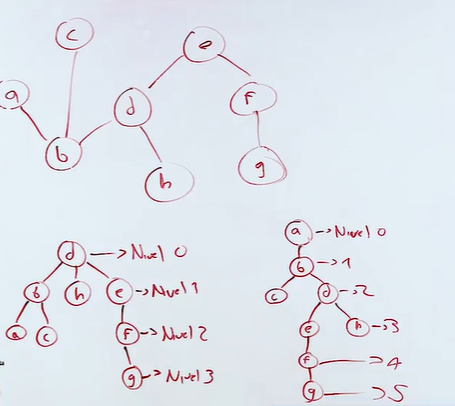 c
e
a
d
f
b
h
g
d → Nivel 0
b h e → Nivel 1
a c f → Nivel 2
g → Nivel 3
a → Nivel 0
b → 1
c d → 2
e h → 3
f → 4
g → 5